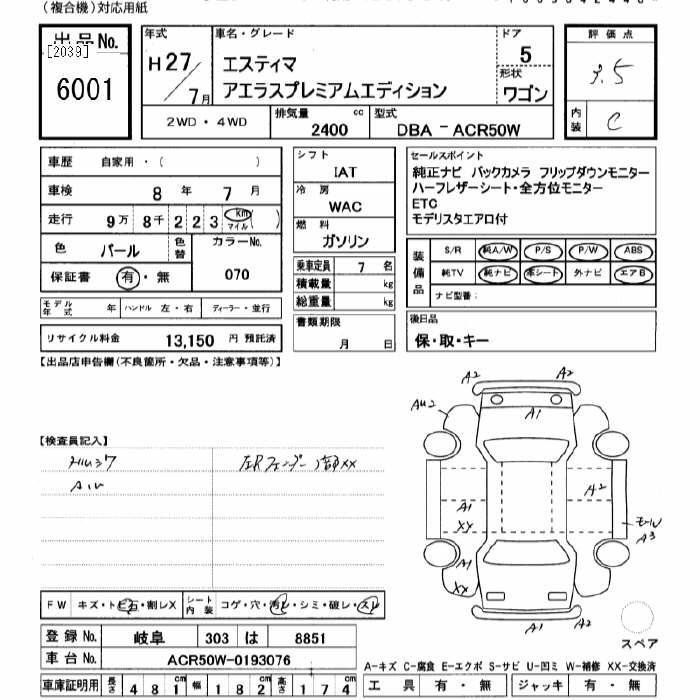 (複合機)対応用紙
出品No.
[2039]
6001
年式
H27/7月
車名・グレード
エスティマ
アエラスプレミアムエディション
ドア
5
形状
ワゴン
評価点
3.5
内装
C
2WD・4WD
排気量
2400 cc
型式
DBA-ACR50W
車歴 自家用・( )
車検 8年 7月
走行 9万 8千 2 2 3 km マイル ( )
色 パール 色替 カラーNo. 070
保証書 有・無
モデル年式 年 ハンドル 左・右 ディーラー・並行
リサイクル料金 13,150 円 預託済
シフト
IAT
冷房
WAC
燃料
ガソリン
乗車定員 7 名
積載量 kg
総重量 kg
書類期限
月 日
セールスポイント
純正ナビ バックカメラ フリップダウンモニター
ハーフレザーシート・全方位モニター
ETC
モデリスタエアロ付
装備品
S/R 純A/W P/S P/W ABS
純TV 純ナビ 本シート 外ナビ エアB
ナビ型番:
後日品
保・取・キー
【出品店申告欄(不良箇所・欠品・注意事項等)】
【検査員記入】
A2
A2
AU2
A1
A2
A1
XX
モール
A3
A1
XX
スペア
FW キズ・トビ石・割レX シート内装 コゲ・穴・汚レ・シミ・破レ・スレ
登録No. 岐阜 303 は 8851
車台No. ACR50W-0193076
車庫証明用 長さ 481cm 幅 182cm 高さ 174
A-キズ C-腐食 E-エクボ S-サビ U-凹ミ W-補修 XX-交換済
工具 有・無 ジャッキ 有・無